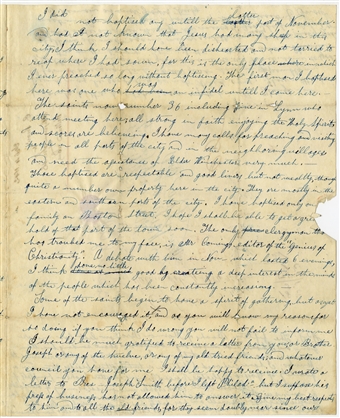 I did
not baptise any until the latter part of November
and had I not known that Jesus had many sheep in this
city, I think I should have been disheartened and not tarried to
reap where I had sown, for this is the only place where in which
I ever preached so long without baptising. The first man I baptised
here was one who was an infidel until I came here.
The saints now number 36 including nine in Lynn who
attend meeting here, all strong in faith enjoying the Holy Spirit
and scores are believing. I have many calls for preaching and visiting
people in all part of the city and in the neighboring villages
and need the assistance of Elder very much
Those baptised are respectable and good livers but not wealthy, though
quite a number own property here in the city. They are mostly in the
eastern and southern part of the city. I have baptised only one
family on Boston Street, I hope I shall be able to get a good
hold of that part of the town soon. The only clergyman that
has troubled me to my face, is Mr Comings editor of the "Genius of
Christianity". A debate with him in town which lasted 6 evenings,
I think done a little good by creating a deep interest in the minds
of the people which has been constantly increasing.
Some of the saints began to have a spirit of gathering, but as yet
I have not encouraged it, and as you will know my reasons for
so doing if you think I do wrong you will not fail to inform me
I should be much gratified to receive a letter from you or Brother
Joseph or any of the twelve, or any of my old tried friends, and whatever
council you have for me I shall be happy to receive. I wrote a
letter to Bro. Joseph Smith before I left Philad. but I suppose his
press of business has not allowed him to answer it, giving best respects
to him and to all the old friends, for they seem hourly near since our